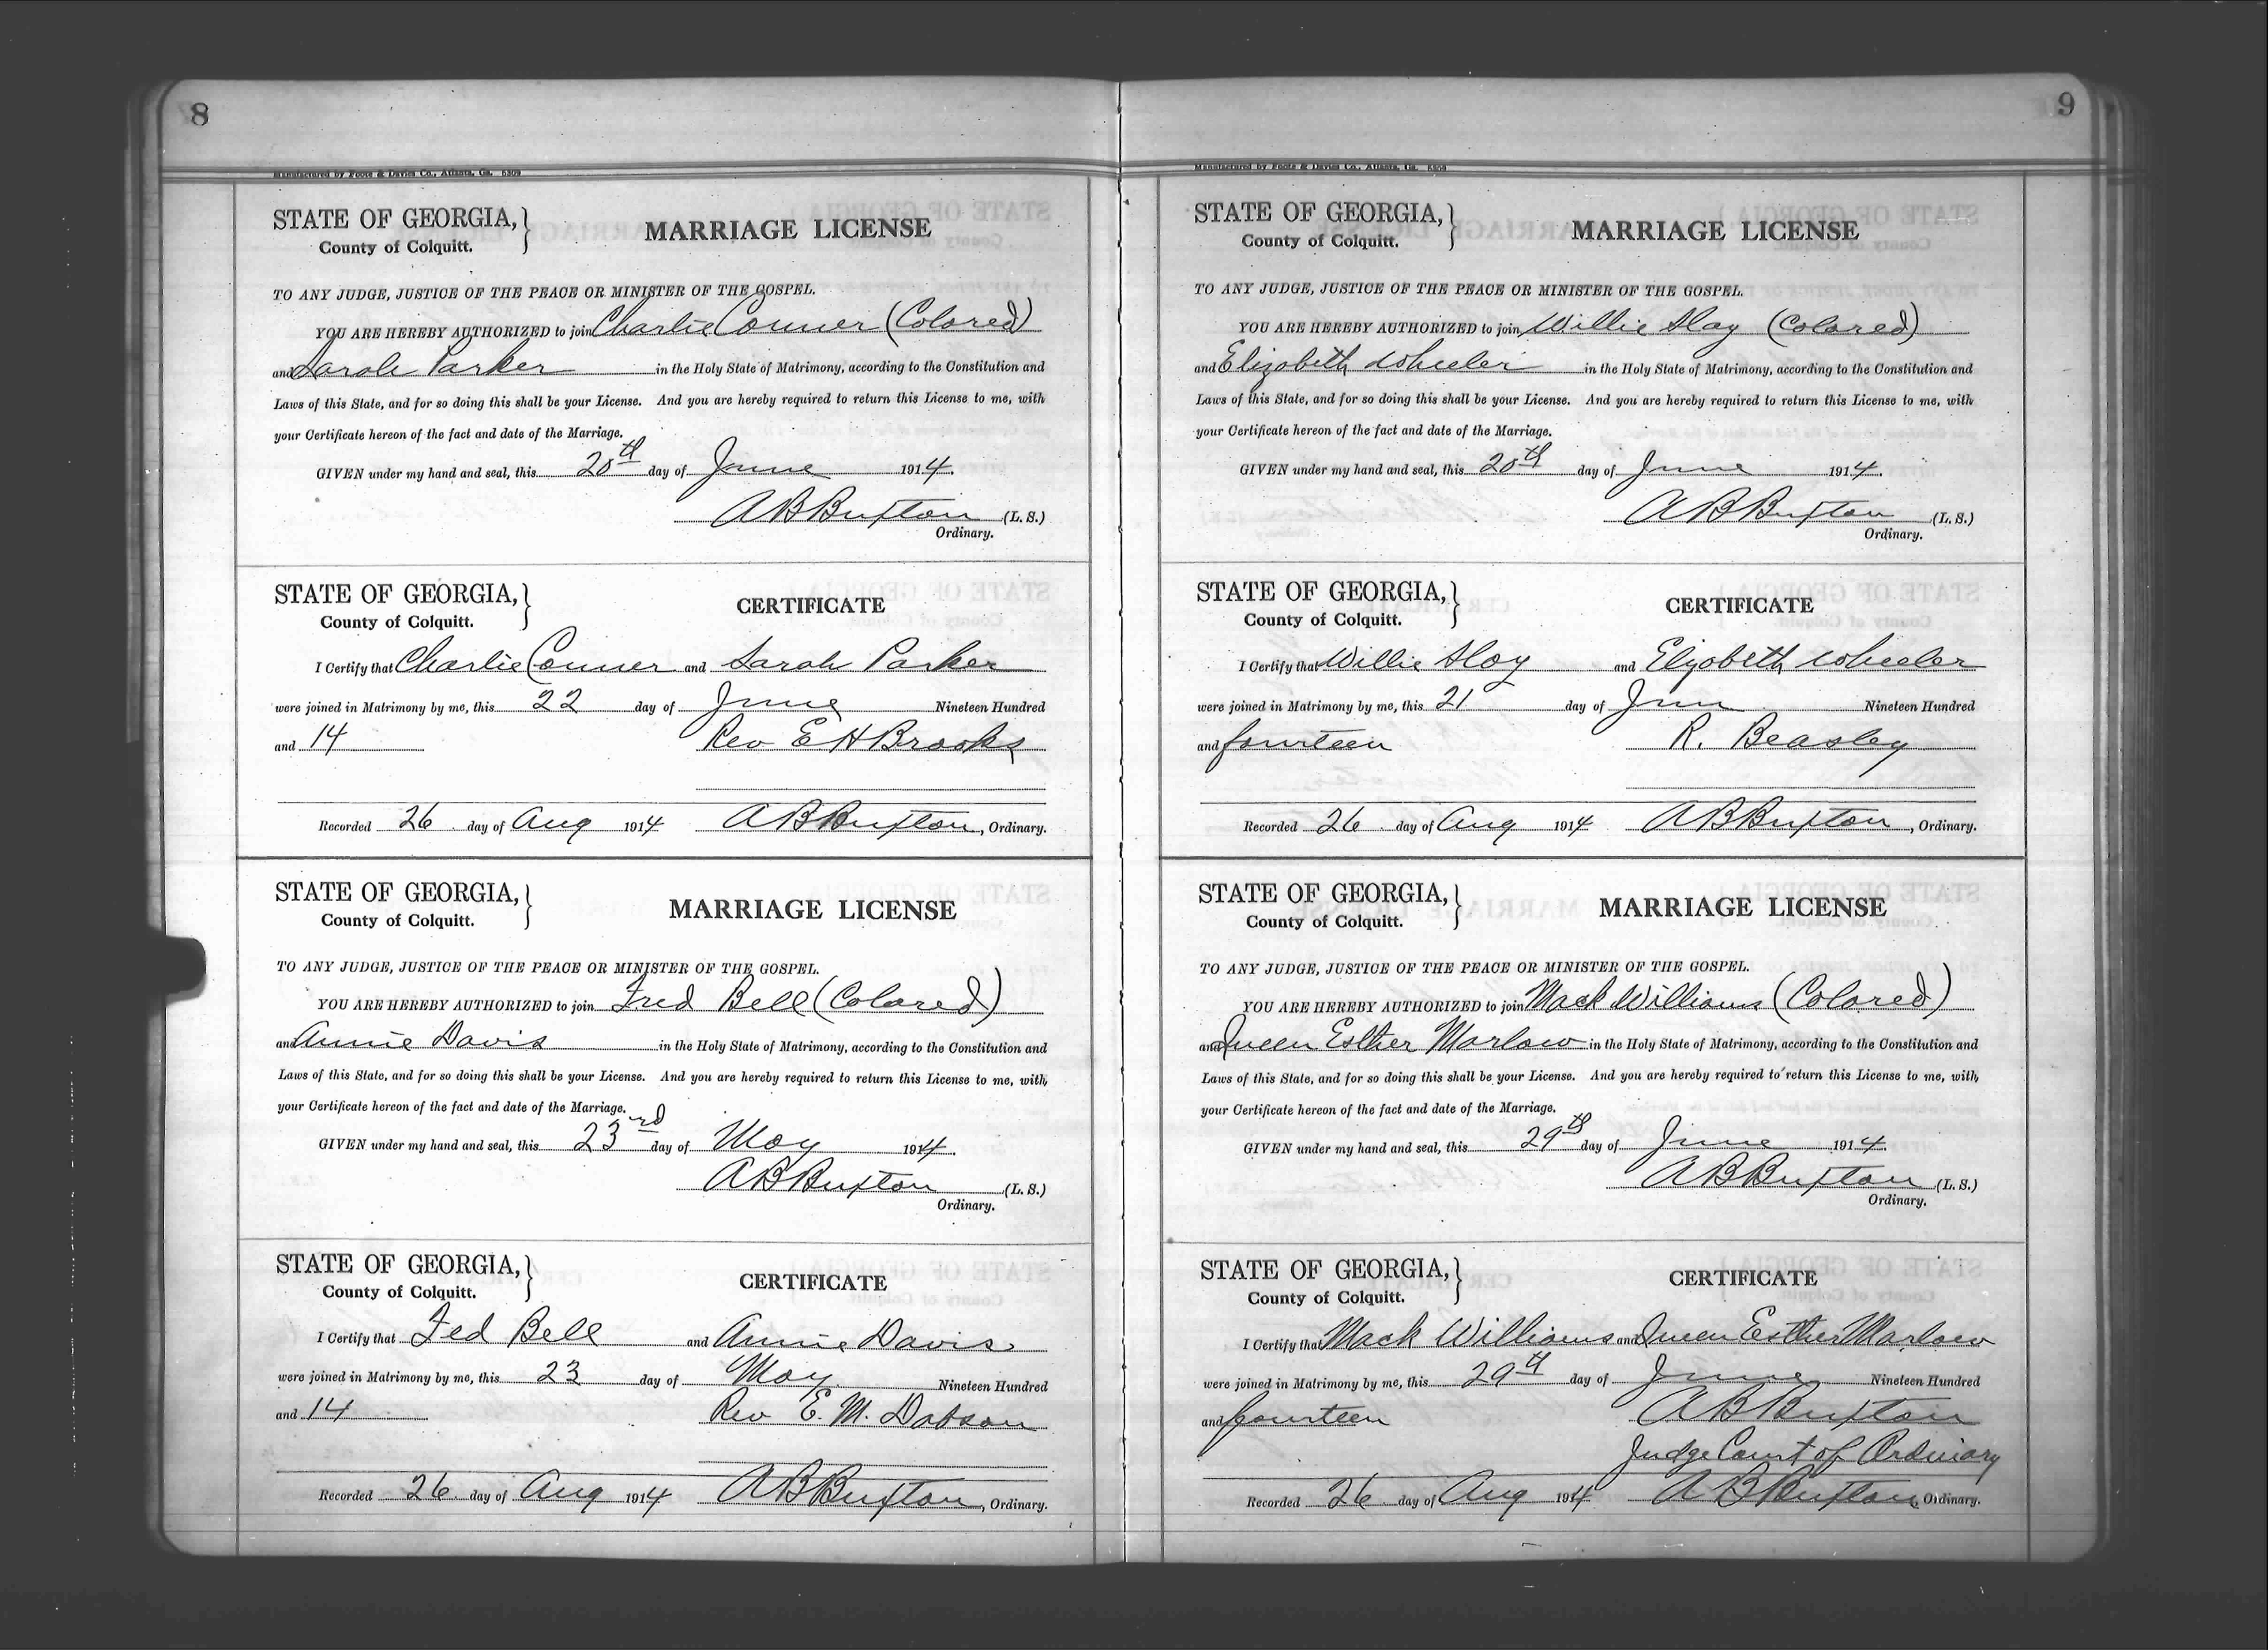 8
Manufactured by Foote & Davies Co., Atlanta, Ga. 5309
STATE OF GEORGIA,
County of Colquitt.
MARRIAGE LICENSE
TO ANY JUDGE, JUSTICE OF THE PEACE OR MINISTER OF THE GOSPEL.
YOU ARE HEREBY AUTHORIZED to join Charlie Conner (Colored)
and Sarah Parker in the Holy State of Matrimony, according to the Constitution and
Laws of this State, and for so doing this shall be your License. And you are hereby required to return this License to me, with
your Certificate hereon of the fact and date of the Marriage.
GIVEN under my hand and seal, this 20th day of June 1914.
A B Buxton (L. S.)
Ordinary.
STATE OF GEORGIA,
County of Colquitt.
CERTIFICATE
I Certify that Charlie Conner and Sarah Parker
were joined in Matrimony by me, this 22 day of June Nineteen Hundred
and 14 Rev E H Brooks
Recorded 26 day of Aug 1914 A B Buxton, Ordinary.
STATE OF GEORGIA,
County of Colquitt.
MARRIAGE LICENSE
TO ANY JUDGE, JUSTICE OF THE PEACE OR MINISTER OF THE GOSPEL.
YOU ARE HEREBY AUTHORIZED to join Fred Bell (Colored)
and Annie Davis in the Holy State of Matrimony, according to the Constitution and
Laws of this State, and for so doing this shall be your License. And you are hereby required to return this License to me, with
your Certificate hereon of the fact and date of the Marriage.
GIVEN under my hand and seal, this 23rd day of May 1914.
A B Buxton (L. S.)
Ordinary.
STATE OF GEORGIA,
County of Colquitt.
CERTIFICATE
I Certify that Fed Bell and Annie Davis
were joined in Matrimony by me, this 23 day of May Nineteen Hundred
and 14 Rev E. M. Dotson
Recorded 26 day of Aug 1914 A B Buxton, Ordinary.
9
Manufactured by Foote & Davies Co., Atlanta, Ga. 5309
STATE OF GEORGIA,
County of Colquitt.
MARRIAGE LICENSE
TO ANY JUDGE, JUSTICE OF THE PEACE OR MINISTER OF THE GOSPEL.
YOU ARE HEREBY AUTHORIZED to join Willie Slay (Colored)
and Elizabeth Wheeler in the Holy State of Matrimony, according to the Constitution and
Laws of this State, and for so doing this shall be your License. And you are hereby required to return this License to me, with
your Certificate hereon of the fact and date of the Marriage.
GIVEN under my hand and seal, this 20th day of June 1914.
A B Buxton (L. S.)
Ordinary.
STATE OF GEORGIA,
County of Colquitt.
CERTIFICATE
I Certify that Willie Slay and Elizabeth Wheeler
were joined in Matrimony by me, this 21 day of June Nineteen Hundred
and fourteen R. Beasley
Recorded 26 day of Aug 1914 A B Buxton, Ordinary.
STATE OF GEORGIA,
County of Colquitt.
MARRIAGE LICENSE
TO ANY JUDGE, JUSTICE OF THE PEACE OR MINISTER OF THE GOSPEL.
YOU ARE HEREBY AUTHORIZED to join Mack Williams (Colored)
and Queen Esther Marlow in the Holy State of Matrimony, according to the Constitution and
Laws of this State, and for so doing this shall be your License. And you are hereby required to return this License to me, with
your Certificate hereon of the fact and date of the Marriage.
GIVEN under my hand and seal, this 29th day of June 1914.
A B Buxton (L. S.)
Ordinary.
STATE OF GEORGIA,
County of Colquitt.
CERTIFICATE
I Certify that Mack Williams and Queen Esther Marlow
were joined in Matrimony by me, this 29th day of June Nineteen Hundred
and fourteen A B Buxton
Judge Court of Ordinary
Recorded 26 day of Aug 1914 A B Buxton, Ordinary.